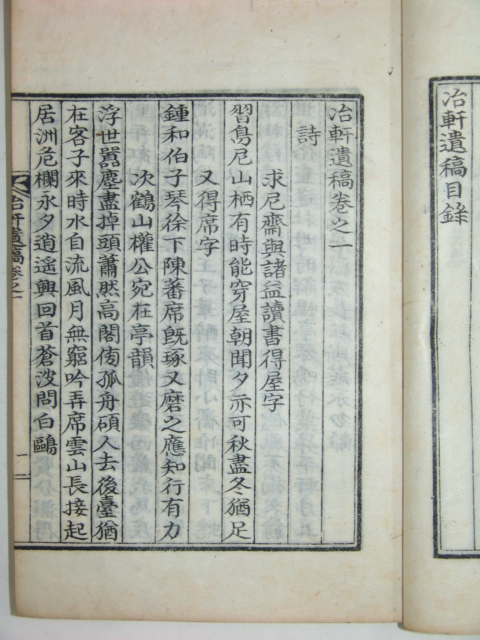 冶軒遺稿目錄
冶軒遺稿卷之一
詩
求尼齋與諸益讀書得屋字
習鳥尼山栖有時能穿屋朝聞夕亦可秋盡冬猶足
又得席字
鍾和伯子琴徐下陳蕃席旣琢又磨之應知行有力
次鶴山權公宛在亭韻
浮世囂塵盡掉頭蕭然高閣倚孤舟碩人去後臺猶
在客子來時水自流風月無窮吟弄席雲山長接起
居洲危欄永夕逍遙興回首蒼波問白鷗
冶軒遺稿卷之一
一